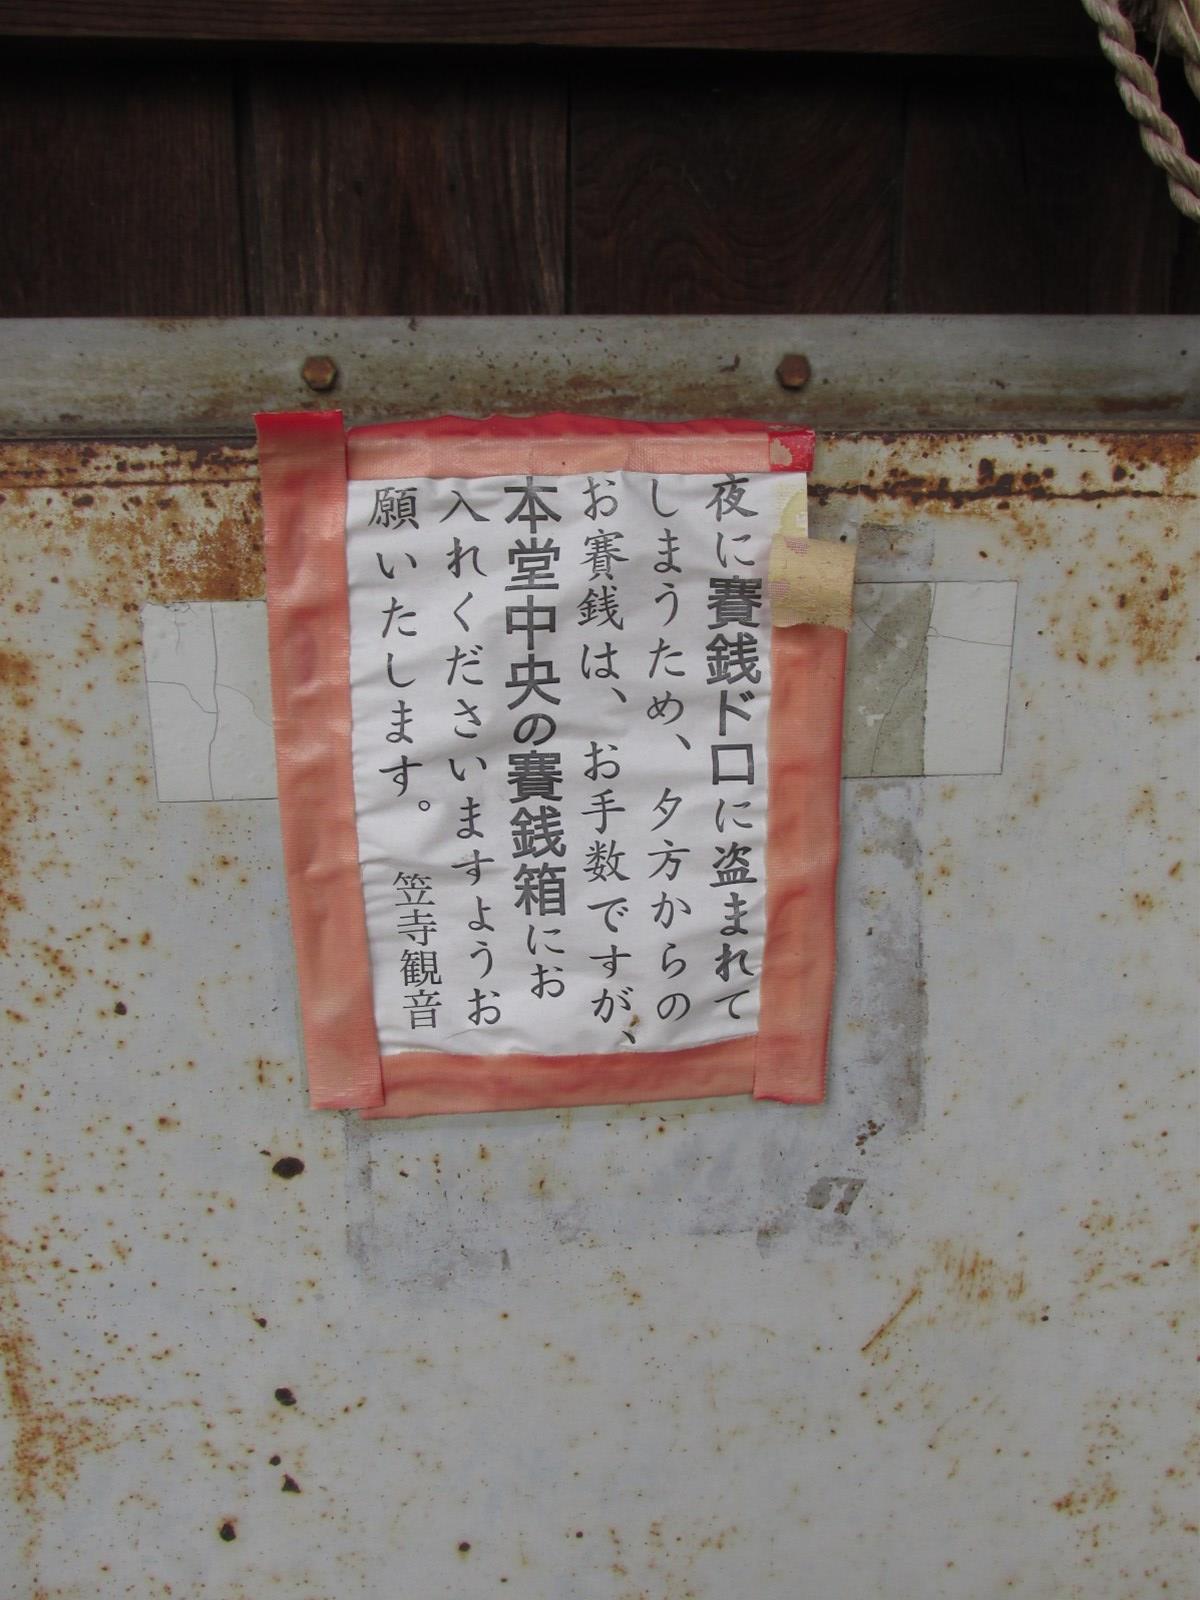 夜に賽銭ドロに盗まれて
しまうため、夕方からの
お賽銭は、お手数ですが、
本堂中央の賽銭箱にお
入れくださいますようお
願いたします。
笠寺観音